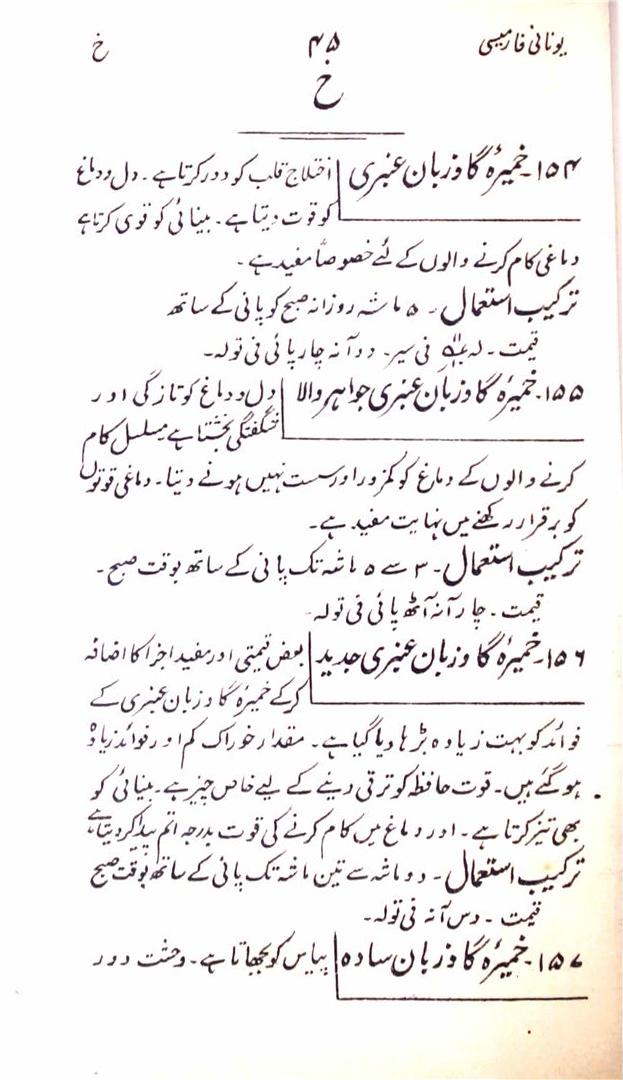 یونانی فارمیسی ۴۵ خ
خ
۱۵۴۔ خمیرۂ گاوزبان عنبری اختلاج قلب کو دور کرتا ہے۔ دل و دماغ
کو قوت دیتا ہے۔ بینائی کو قوی کرتا ہے
دماغی کام کرنے والوں کے لئے خصوصاً مفید ہے۔
ترکیب استعمال۔ ۵ ماشہ روزانہ صبح کو پانی کے ساتھ
قیمت۔ فی سیر۔ دو آنہ چار پائی فی تولہ۔
۱۵۵۔ خمیرۂ گاوزبان عنبری جواہر والا دل و دماغ کو تازگی اور
شگفتگی بخشتا ہے مسلسل کام
کرنے والوں کے دماغ کو کمزور اور سست نہیں ہونے دیتا۔ دماغی قوتوں
کو برقرار رکھنے میں نہایت مفید ہے۔
ترکیب استعمال۔ ۳ سے ۵ ماشہ تک پانی کے ساتھ بوقت صبح۔
قیمت۔ چار آنہ آٹھ پائی فی تولہ۔
۱۵۶۔ خمیرۂ گاوزبان عنبری جدید بعض قیمتی اور مفید اجزا کا اضافہ
کرکے خمیرۂ گاوزبان عنبری کے
فوائد کو بہت زیادہ بڑھا دیا گیا ہے۔ مقدار خوراک کم اور فوائد زیادہ
ہوگئے ہیں۔ قوت حافظہ کو ترقی دینے کے لیے خاص چیز ہے۔ بینائی کو
بھی تیز کرتا ہے۔ اور دماغ میں کام کرنے کی قوت بدرجہ اتم پیدا کردیتا ہے
ترکیب استعمال۔ دو ماشہ سے تین ماشہ تک پانی کے ساتھ بوقت صبح
قیمت۔ دس آنہ فی تولہ۔
۱۵۷۔ خمیرۂ گاوزبان سادہ پیاس کو بجھاتا ہے۔ وحشت دور